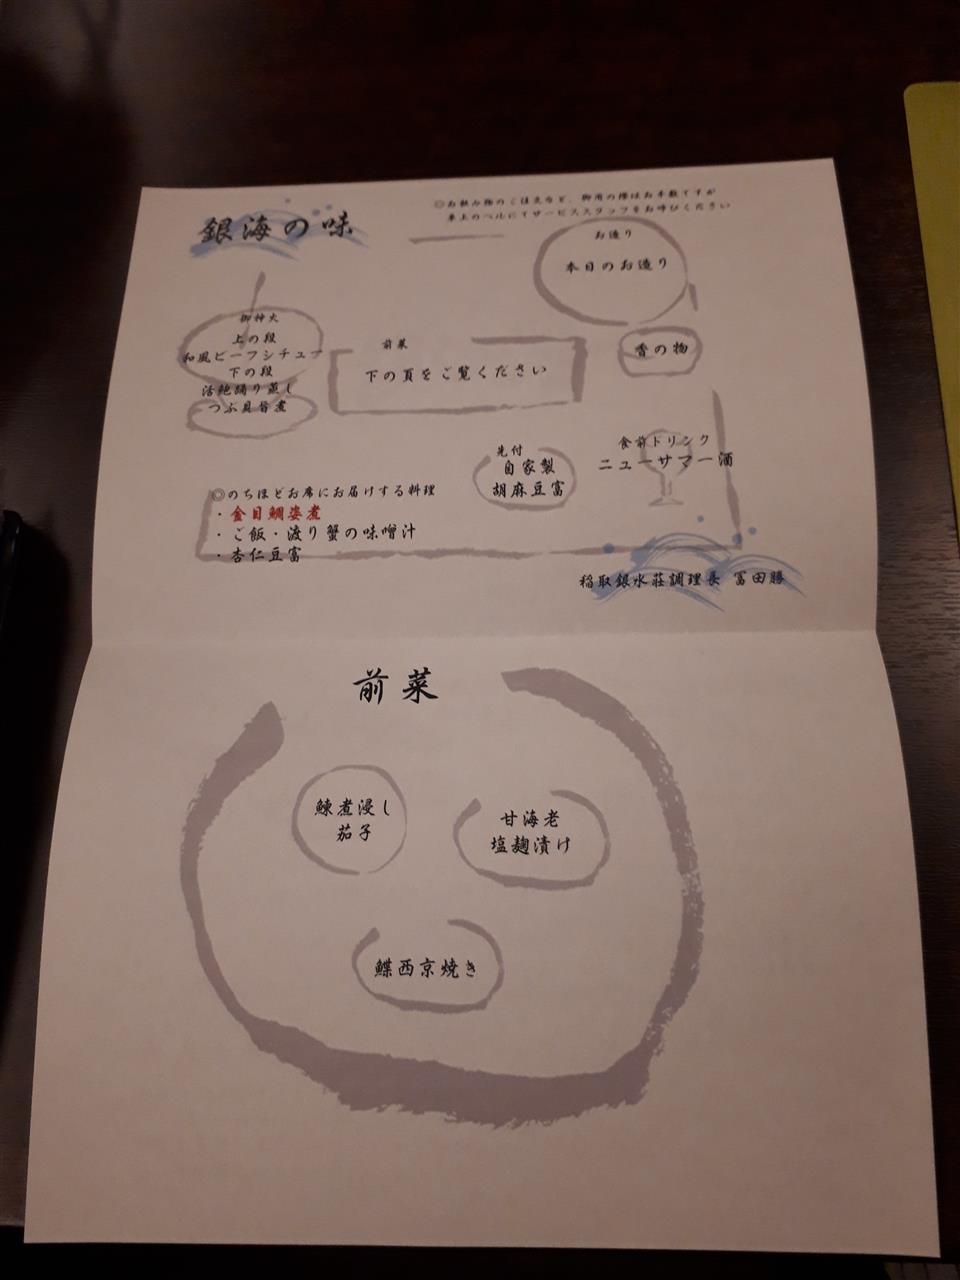 銀海の味
◎お飲み物のご注文など、御用の際はお手数ですが
卓上のベルにてサービススタッフをお呼びください
お造り
本日のお造り
御神火
上の段
和風ビーフシチュー
下の段
活鮑踊り蒸し
つぶ貝旨煮
前菜
下の頁をご覧ください
香の物
先付
自家製
胡麻豆富
食前ドリンク
ニューサマー酒
◎のちほどお席にお届けする料理
・金目鯛姿煮
・ご飯・渡り蟹の味噌汁
・杏仁豆富
稲取銀水荘調理長 冨田勝
前菜
鰊煮浸し
茄子
甘海老
塩麹漬け
鰈西京焼き